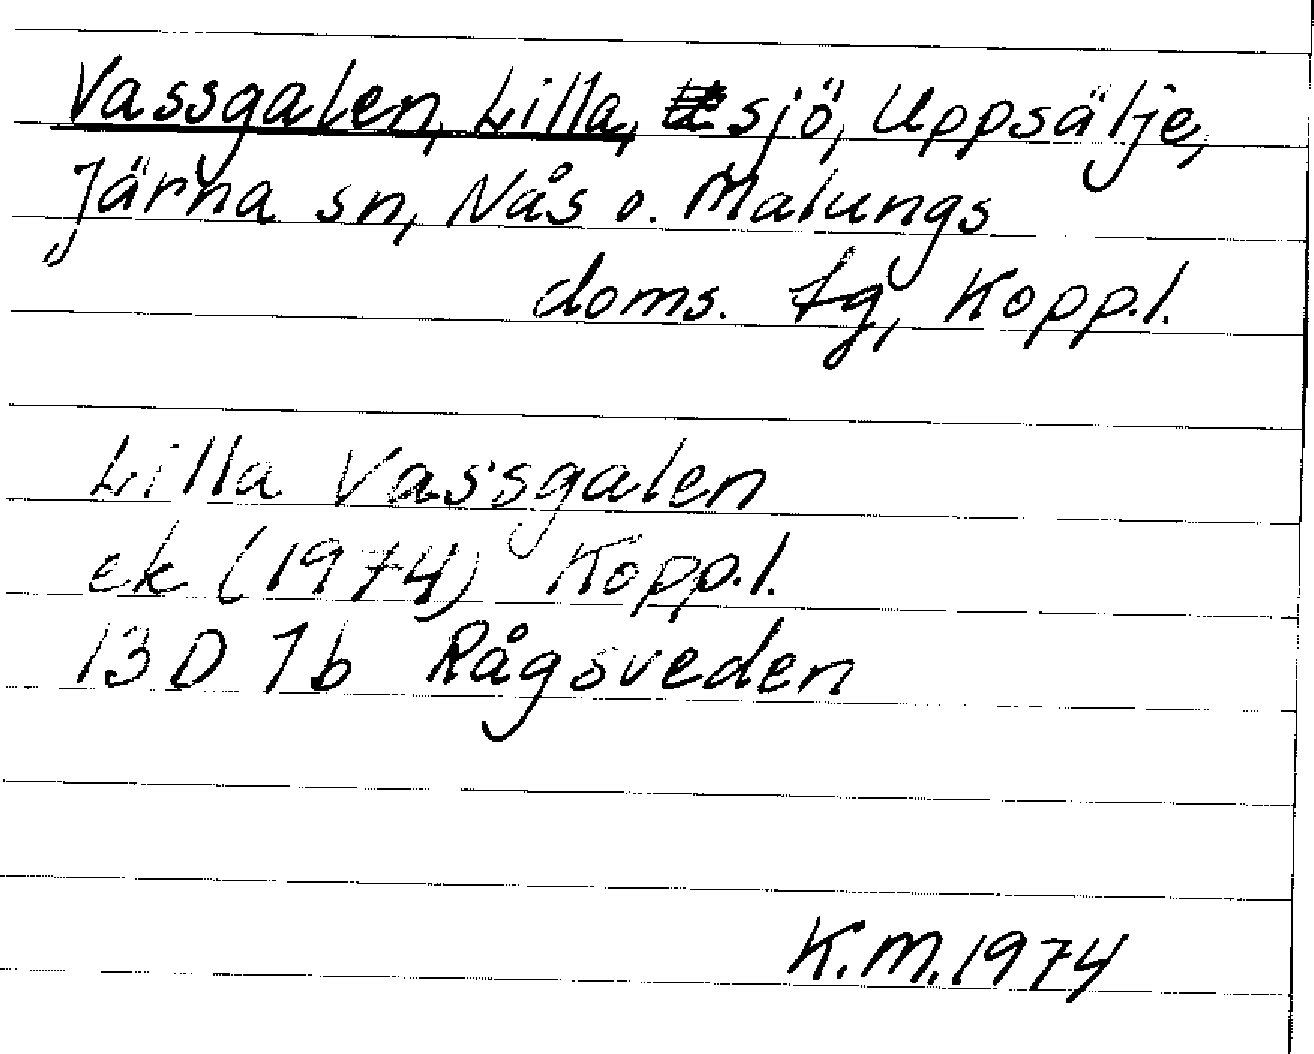 Vassgalen, Lilla, sjö, Uppsälje,
Järna sn, Nås o. Malungs
doms. tg, Kopp.l.
Lilla Vassgalen
ek (1974) Kopp.l.
13 D 7b Rågsveden
K.M. 1974